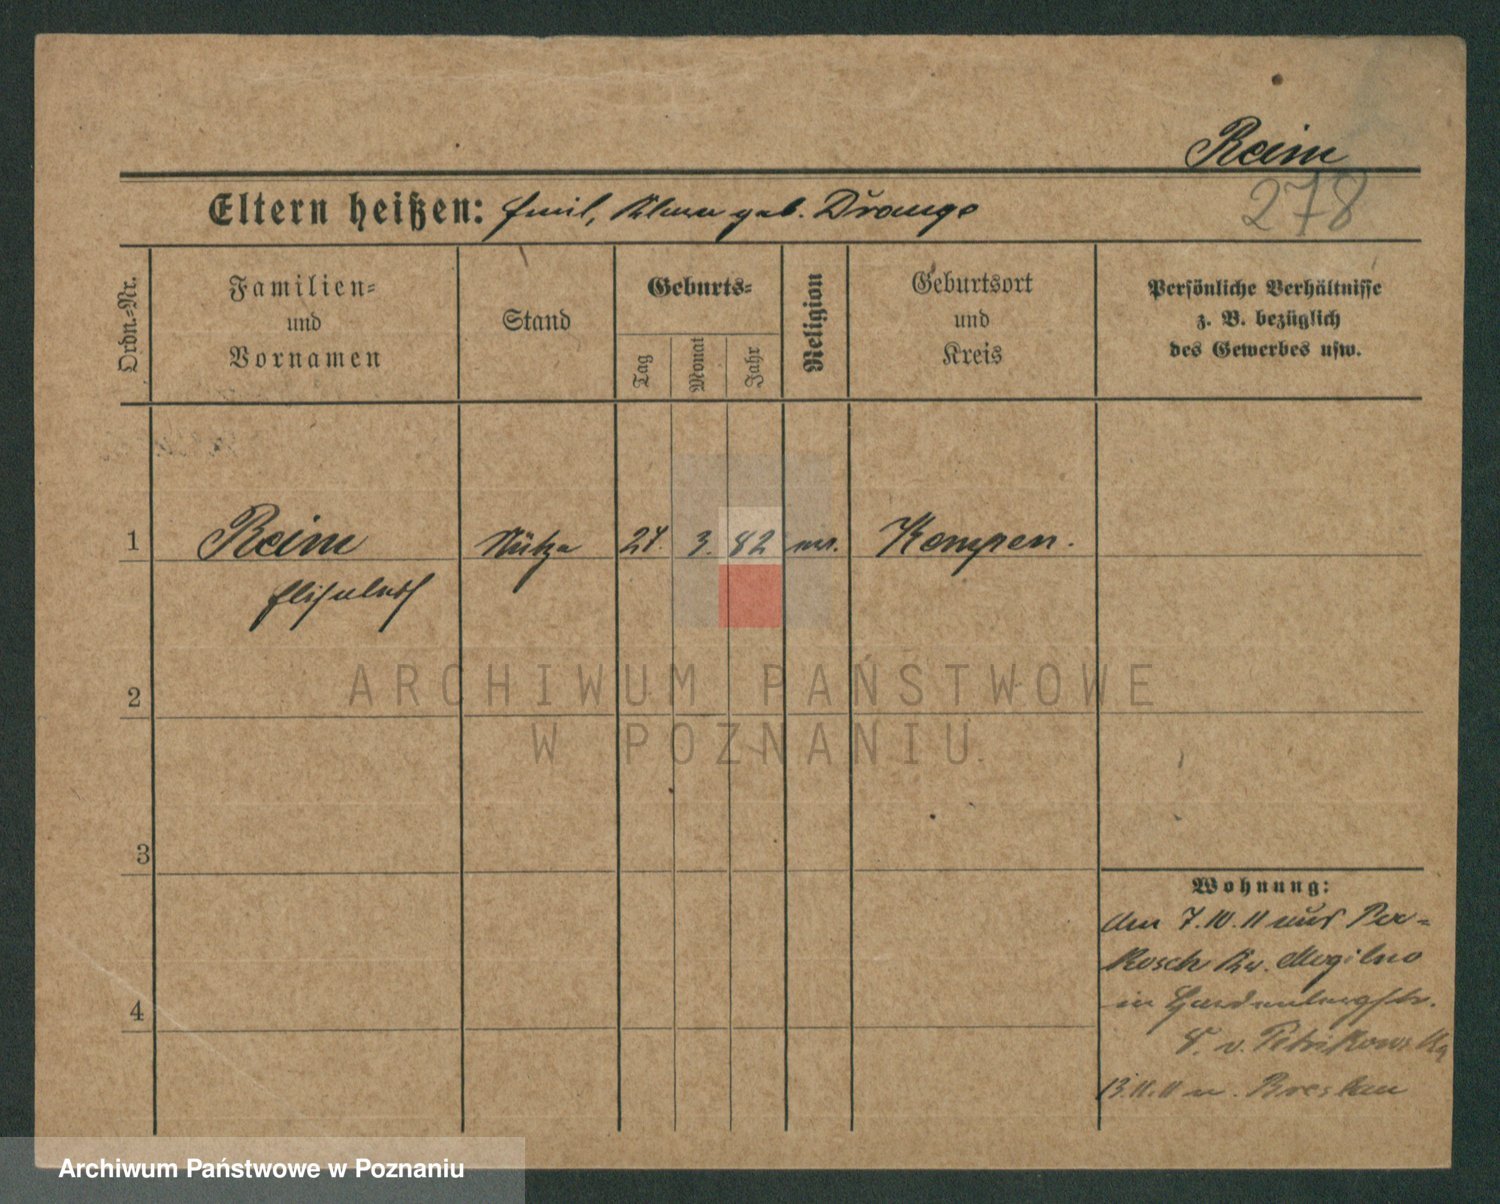 Reim
278
Eltern heißen: Emil, Alma geb. Drange
Ordn.-Nr.
Familien-
und
Vornamen
Stand
Geburts-
Tag
Monat
Jahr
Religion
Geburtsort
und
Kreis
Persönliche Verhältnisse
z. B. bezüglich
des Gewerbes usw.
1
Reim
Stütze
24. 3. 82
Kempen.
Elisabeth
ARCHIWUM PAŃSTWOWE
W POZNANIU
2
3
4
Wohnung:
den 7.10.11 aus
Kr. Mogilno
in Hardenbergstr.
8. v. Petrikowska
13.11.11 n. Breslau
Archiwum Państwowe w Poznaniu